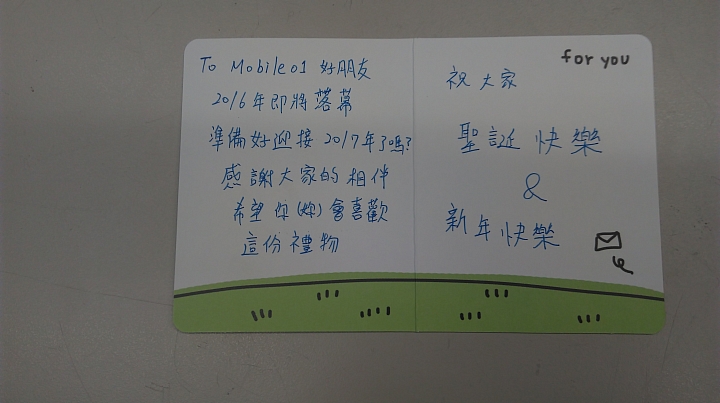 To Mobile01 好朋友
2016年即將落幕
準備好迎接 2017年了嗎?
感謝大家的相伴
希望你(妳)會喜歡
這份禮物
for you
祝大家
聖誕快樂
&
新年快樂